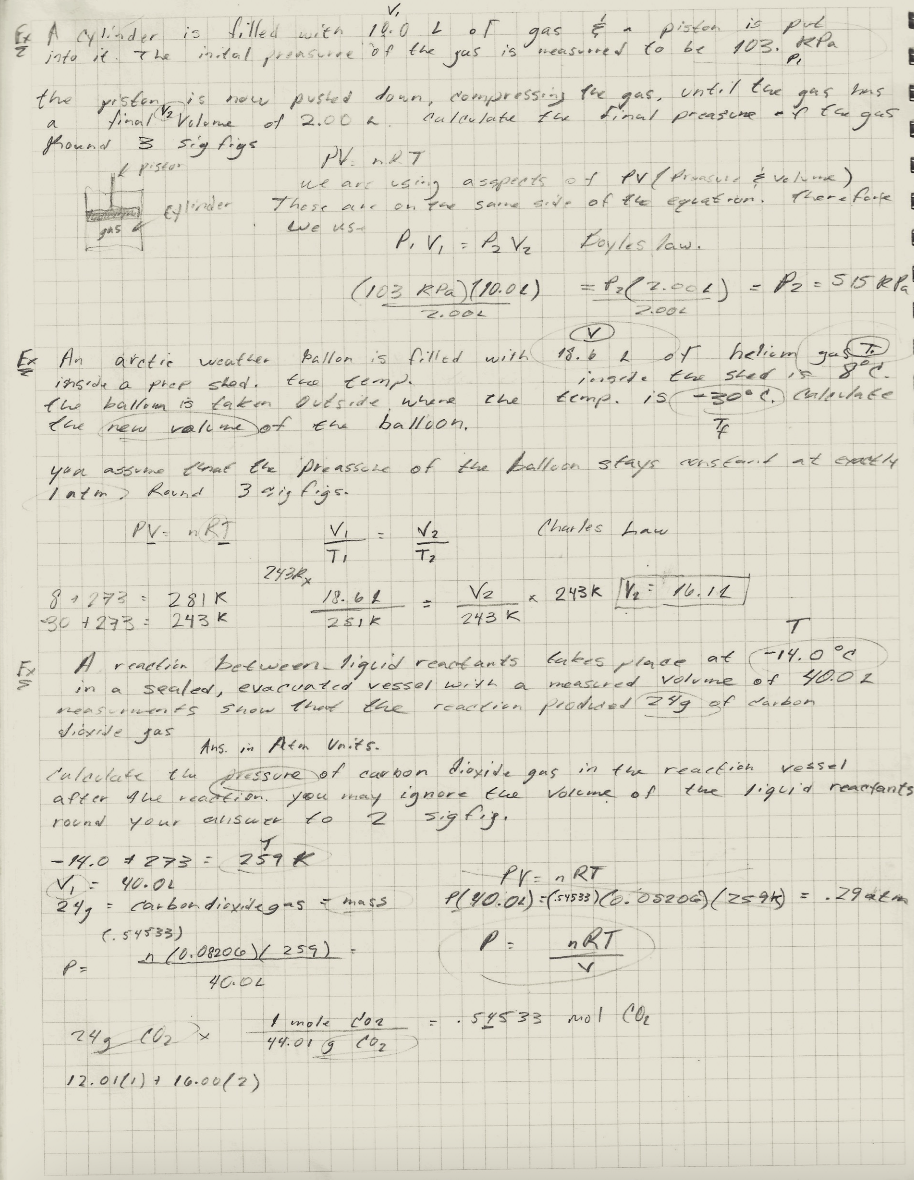 V₁
Ex A cylinder is filled with 10.0 L of gas & a piston is put
into it. The inital preasure of the gas is measured to be 103. KPa
P₁
the piston is now pushed down, compressing the gas, until the gas has
a final V₂ Volume of 2.00 L. Calculate the final preasure of the gas
Round 3 sig figs
PV = nRT
piston
we are using aspects of PV (Preasure & Volume)
cylinder These are on the same side of the equation. Therefore
gas
we use
P₁ V₁ = P₂ V₂ Boyles law.
(103 KPa)(10.0L) = P₂(2.00L) = P₂ = 515 KPa
2.00L 2.00L
V
Ex An arctic weather ballon is filled with 18.6 L of helium gas T₁
inside a prep shed. the temp. inside the shed is 8°C.
the balloon is taken outside where the temp. is -30°C. Calculate
the new volume of the balloon. Tf
you assume that the preassure of the balloon stays constant at exactly
1 atm. Round 3 sig figs.
PV = nRT V₁ = V₂ Charles Law
T₁ T₂
243K x
8 + 273 = 281K 18.6L = V₂ x 243K V₂ = 16.1L
-30 + 273 = 243K 281K 243K
T
Ex A reaction between liquid reactants takes place at -14.0 °C
in a sealed, evacuated vessel with a measured volume of 40.0 L
measurments show that the reaction produced 24g of carbon
dioxide gas
Ans. in Atm Units.
Calculate the pressure of carbon dioxide gas in the reaction vessel
after the reaction. you may ignore the volume of the liquid reactants
round your answer to 2 sig fig.
T
-14.0 + 273 = 259 K
V₁ = 40.0L PV = nRT
24g = carbon dioxide gas = mass P(40.0L) = (.54533)(0.08206)(259K) = .29atm
(.54533)
P = n(0.08206)(259) = P = nRT
40.0L V
24g CO₂ x 1 mole CO₂ = .54533 mol CO₂
44.01 g CO₂
12.01(1) + 16.00(2)